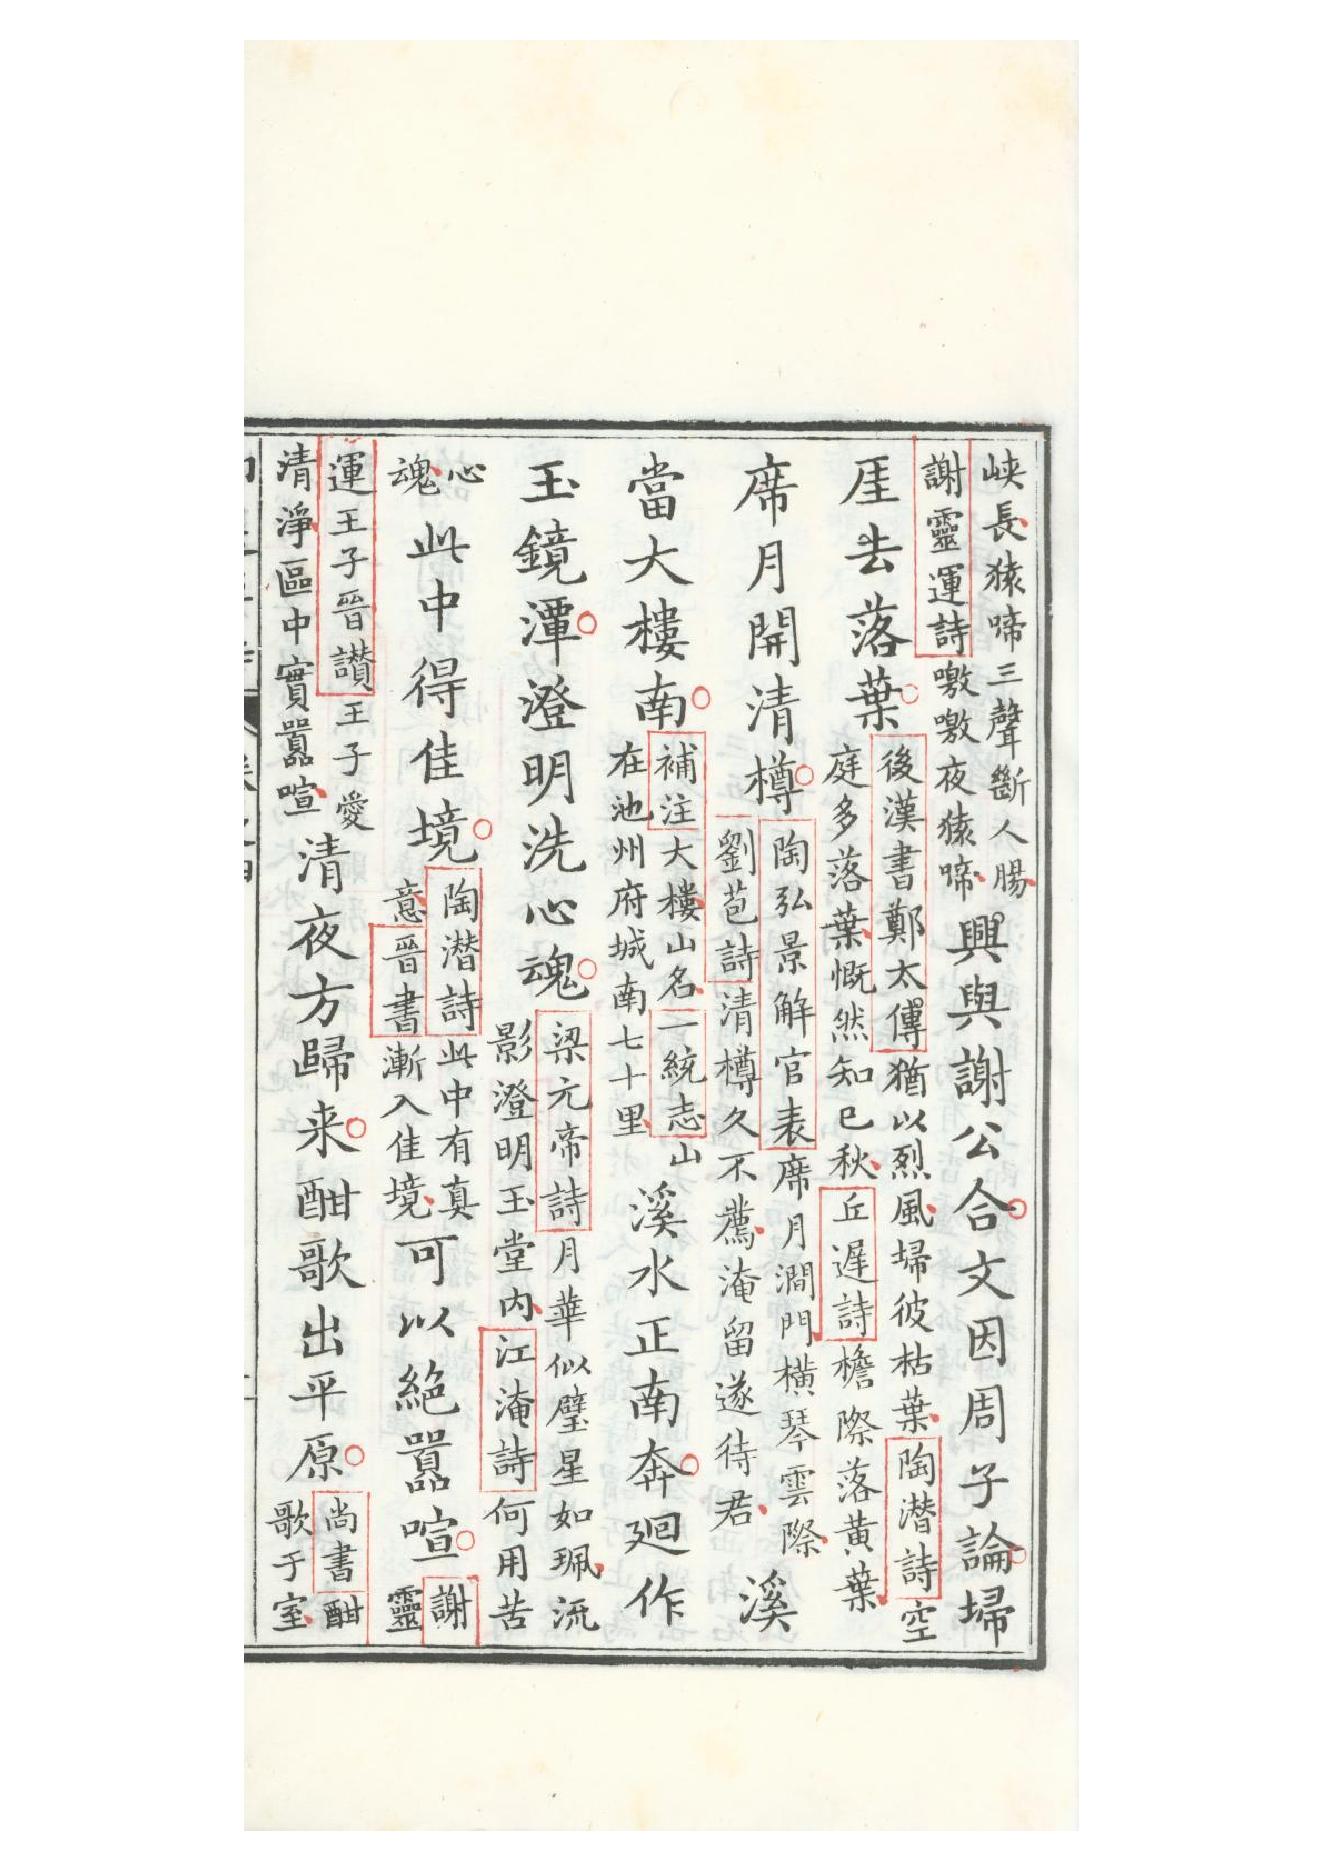 峽長猿啼三聲斷人腸
謝靈運詩噭噭夜猿啼
興與謝公合文因周子論埽
厓去落葉
後漢書鄭太傳猶以烈風埽彼枯葉陶潛詩空
庭多落葉慨然知已秋丘遲詩檐際落黃葉
席月開清樽
陶弘景解官表席月澗門橫琴雲際
劉苞詩清樽久不薦淹留遂待君
溪
當大樓南
補注大樓山名一統志山
在池州府城南七十里
溪水正南奔廻作
玉鏡潭澄明洗心魂
梁元帝詩月華似璧星如珮流
影澄明玉堂內江淹詩何用苦
心
魂
此中得佳境
陶潛詩此中有真
意晉書漸入佳境
可以絕囂喧
謝
靈
運王子晉讃王子愛
清淨區中實囂喧
清夜方歸来酣歌出平原
尚書酣
歌于室